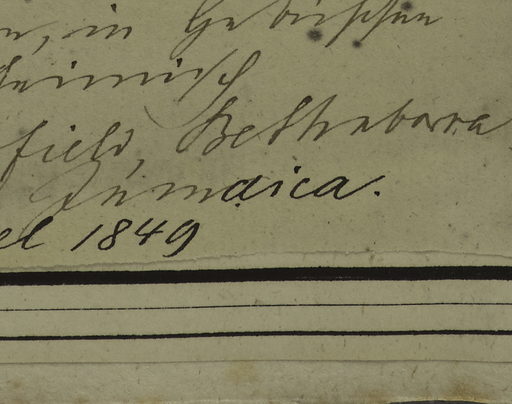 n, in Gebüschen
heimisch
field, Bethabara
Jamaica.
el 1849